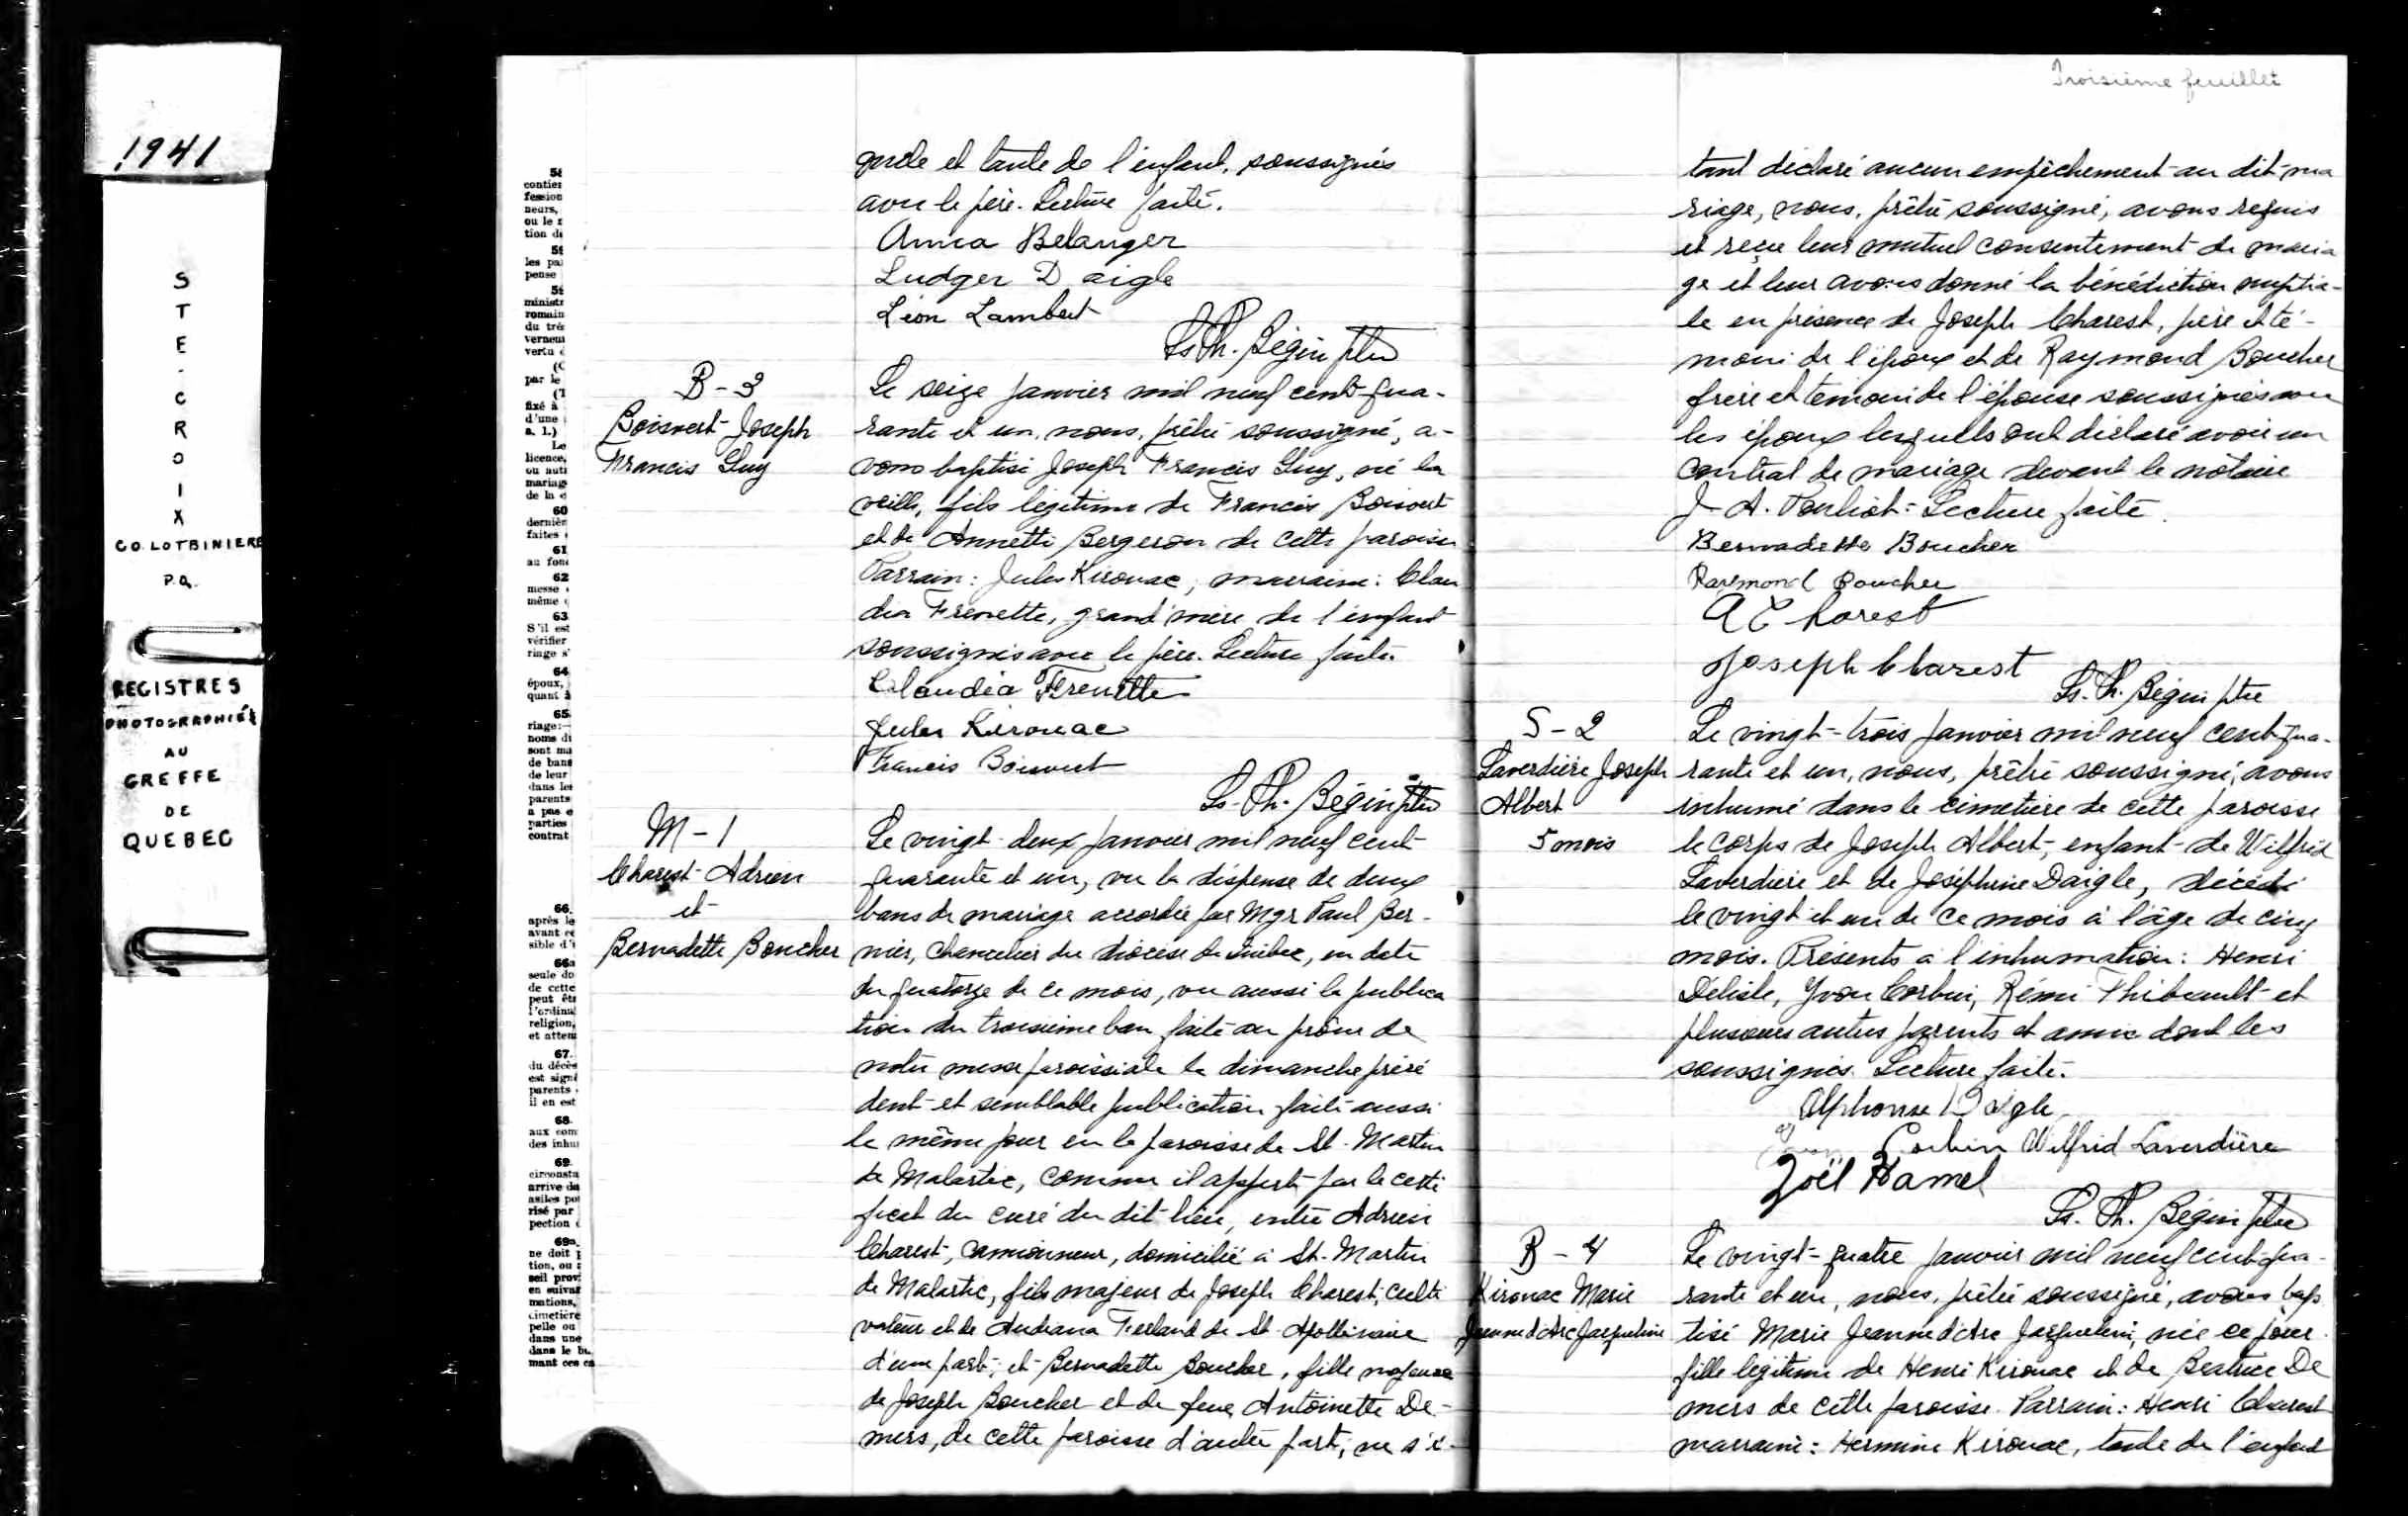 1941
S
T
E
-
C
R
O
I
X
CO. LOTBINIERE
P.Q.
REGISTRES
PHOTOGRAPHIÉS
AU
GREFFE
DE
QUEBEC
contier
fession
neurs,
ou le
tion d
les pa
pense
ministr
romain
du tré
verneu
vertu
par le
fixé à
d'une
a. 1.)
Le
licence,
ou aut
mariag
de la
60
dernièr
faites
61
au fon
62
messe
même
63
S'il est
vérifier
riage s'
64
époux,
quant à
65
riage:—
noms d
sont ma
de bans
de leur
dans les
parents
a pas e
parties
contrat
66.
après le
avant ce
sible d'i
66a
seule do
de cette
peut êt
l'ordina
religion,
et atten
67.
du décès
est signé
parents
il en est
68.
aux com
des inhu
69.
circonsta
arrive da
asiles po
risé par
pection
69a.
ne doit
tion, ou
seil prov
en suivan
mations,
cimetière
pelle ou
dans une
dans le bu
mant ces ca
oncle et tante de l'enfant, soussignés
avec le père. Lecture faite.
Anna Belanger
Ludger Daigle
Léon Lambert
Ls. Th. Bégin ptre
B-3
Boisvert Joseph
Francis Guy
Le seize janvier mil neuf cent qua-
rante et un, nous, prêtre soussigné, a-
vons baptisé Joseph Francis Guy, né la
veille, fils légitime de Francis Boisvert
et de Annette Bergeron de cette paroisse
Parrain: Jules Kirouac, marraine: Clau
dia Frenette, grand'mère de l'enfant
soussignés avec le père. Lecture faite.
Claudia Frenette
Jules Kirouac
Francis Boisvert
Ls. Th. Bégin ptre
M-1
Charest Adrien
et
Bernadette Boucher
Le vingt-deux janvier mil neuf cent
quarante et un, vu la dispense de deux
bans de mariage accordée par Mgr Paul Ber-
nier, chancelier du diocèse de Québec, en date
du quatorze de ce mois, vu aussi la publica
tion du troisième ban faite au prône de
notre messe paroissiale le dimanche précé
dent et semblable publication faite aussi
le même jour en la paroisse de St-Martin
de Malartic, comme il appert par le certi
ficat du curé du dit lieu, entre Adrien
Charest, camionneur, domicilié à St-Martin
de Malartic, fils majeur de Joseph Charest, culti
vateur et de Audiana Ferland de St-Apollinaire
d'une part; et Bernadette Boucher, fille majeure
de Joseph Boucher et de feue Antoinette De-
mers, de cette paroisse d'autre part; ne s'é-
Troisième feuillet
tant déclaré aucun empêchement au dit ma
riage, nous, prêtre soussigné, avons requis
et reçu leur mutuel consentement de maria
ge et leur avons donné la bénédiction nuptia-
le en présence de Joseph Charest, père et té-
moin de l'époux et de Raymond Boucher
frère et témoin de l'épouse soussignés avec
les époux lesquels ont déclaré avoir un
contrat de mariage devant le notaire
J-A. Pouliot. Lecture faite.
Bernadette Boucher
Raymond Boucher
A Charest
Joseph Charest
Ls. Th. Bégin ptre
S-2
Laverdière Joseph
Albert
5 mois
Le vingt-trois janvier mil neuf cent qua-
rante et un, nous, prêtre soussigné, avons
inhumé dans le cimetière de cette paroisse
le corps de Joseph Albert, enfant de Wilfrid
Laverdière et de Joséphine Daigle, décédé
le vingt et un de ce mois à l'âge de cinq
mois. Présents à l'inhumation: Henri
Delisle, Yvon Corbin, Rémi Thibeault et
plusieurs autres parents et amis dont les
soussignés. Lecture faite.
Alphonse Daigle
Corbin Wilfrid Laverdière
Joël Hamel
Ls. Th. Bégin ptre
B-4
Kirouac Marie
Jeanne d'Arc Jacqueline
Le vingt-quatre janvier mil neuf cent qua-
rante et un, nous, prêtre soussigné, avons bap
tisé Marie Jeanne d'Arc Jacqueline, née ce jour
fille légitime de Henri Kirouac et de Beatrice De
mers de cette paroisse. Parrain: Henri Charest
marraine: Hermine Kirouac, tante de l'enfant